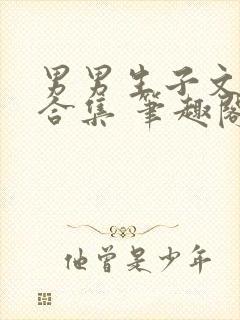 男男生子文
合集 笔趣阁
他曾是少年